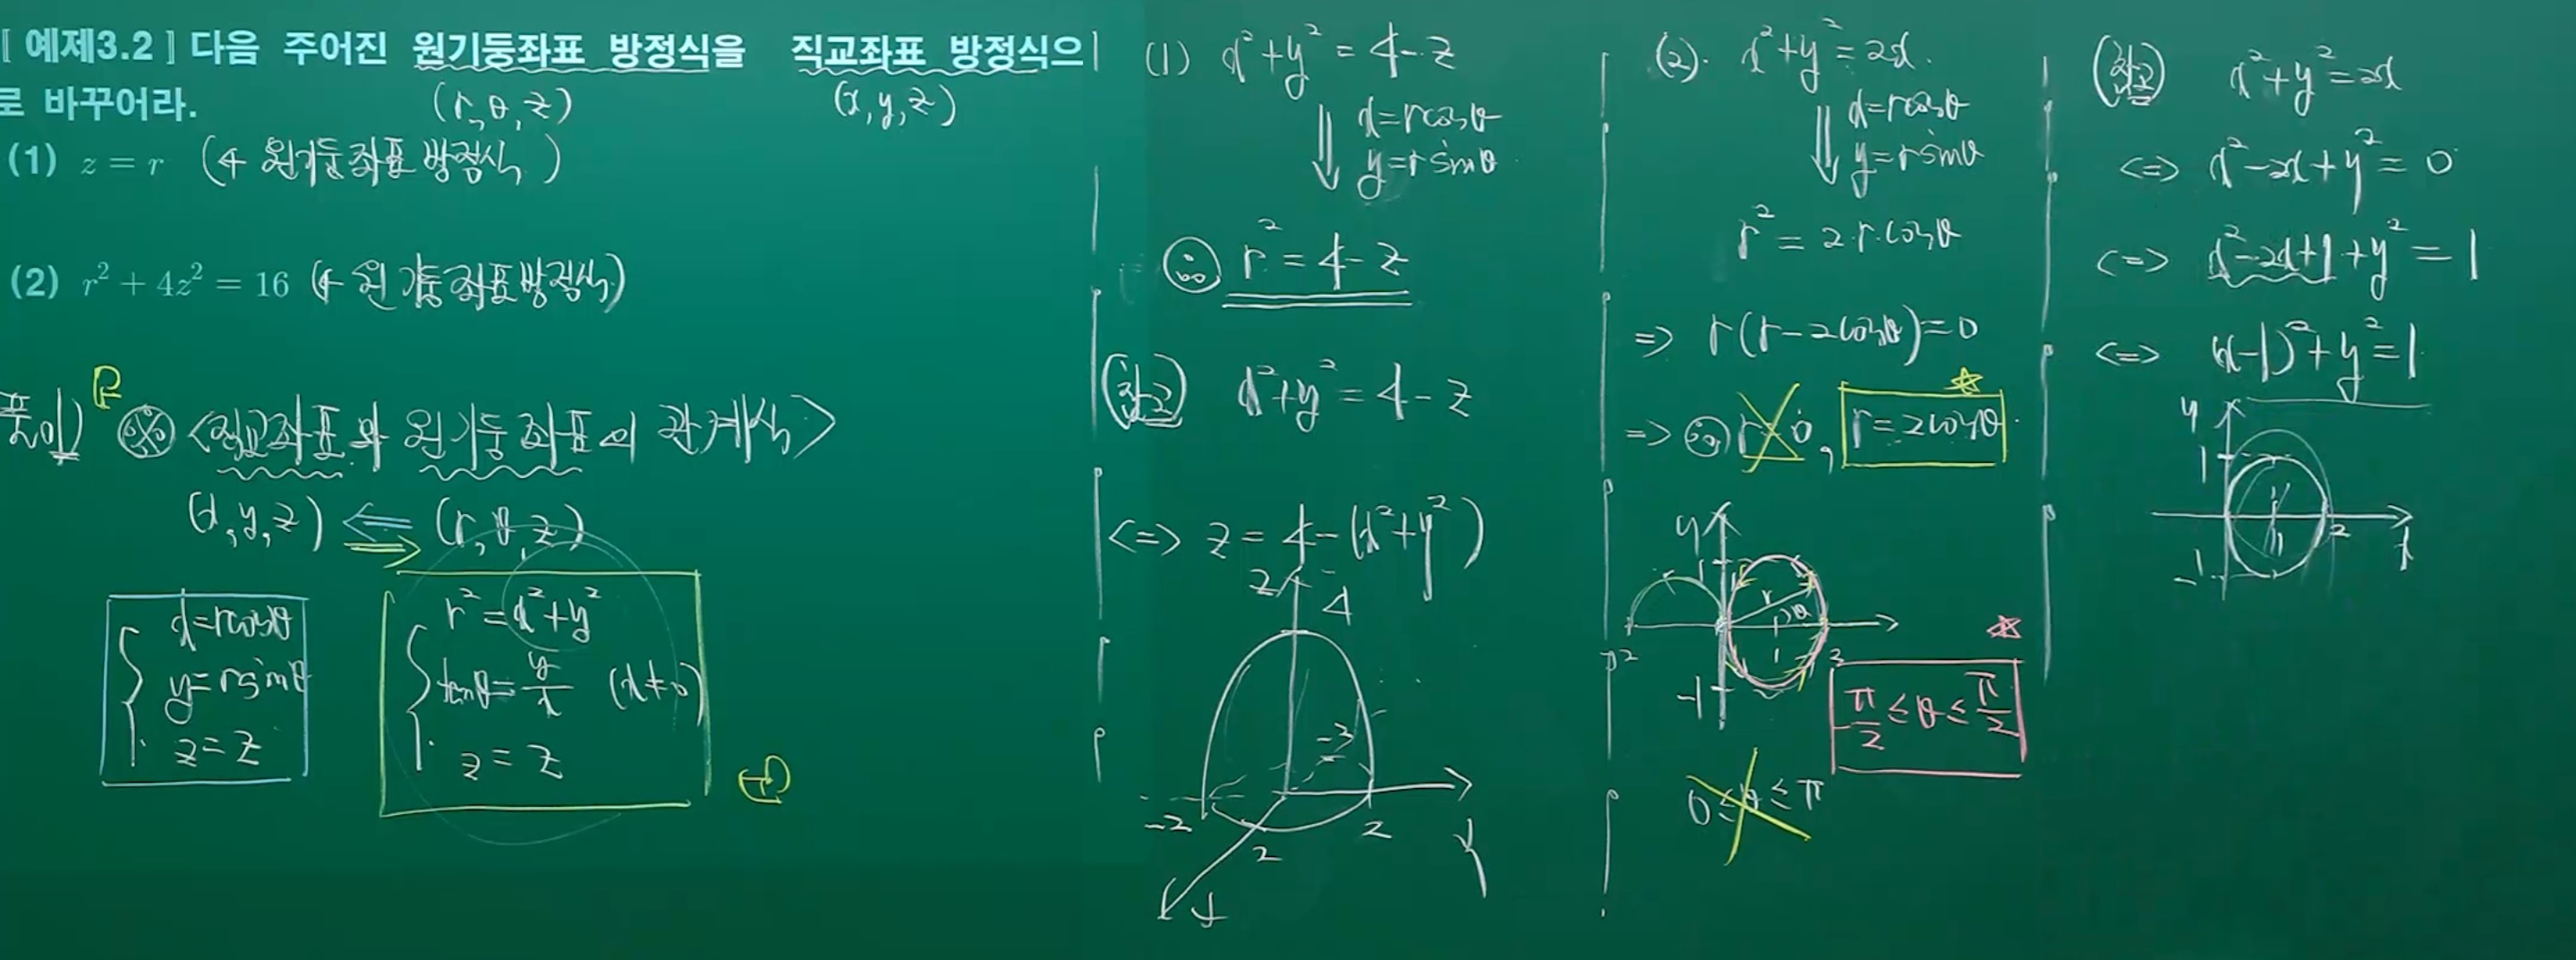 [ 예제3.2 ] 다음 주어진 원기둥좌표 방정식을 직교좌표 방정식으
로 바꾸어라.
(r, θ, z) (x, y, z)
(1) z = r (← 원기둥좌표 방정식)
(2) r² + 4z² = 16 (← 원기둥좌표방정식)
풀이) ※ <직교좌표와 원기둥좌표의 관계식>
(x, y, z) ⇐ ⇒ (r, θ, z)
x=rcosθ
y=rsinθ
z=z
r²=x²+y²
tanθ=y/x (x≠0)
z=z
(1) x²+y²=4-z
x=rcosθ
y=rsinθ
∴ r²=4-z
(참고) x²+y²=4-z
<=> z=4-(x²+y²)
z
4
-2
-2
2
2
y
x
(2). x²+y²=2x.
x=rcosθ
y=rsinθ
r²=2·r·cosθ
=> r(r-2cosθ)=0
=> ∴ r=0, r=2cosθ
y
1
r
θ
1
2
-1
-π/2≤θ≤π/2
0≤θ≤π
(참고) x²+y²=2x
<=> x²-2x+y²=0
<=> x²-2x+1+y²=1
<=> (x-1)²+y²=1
y
1
1
2
x
-1